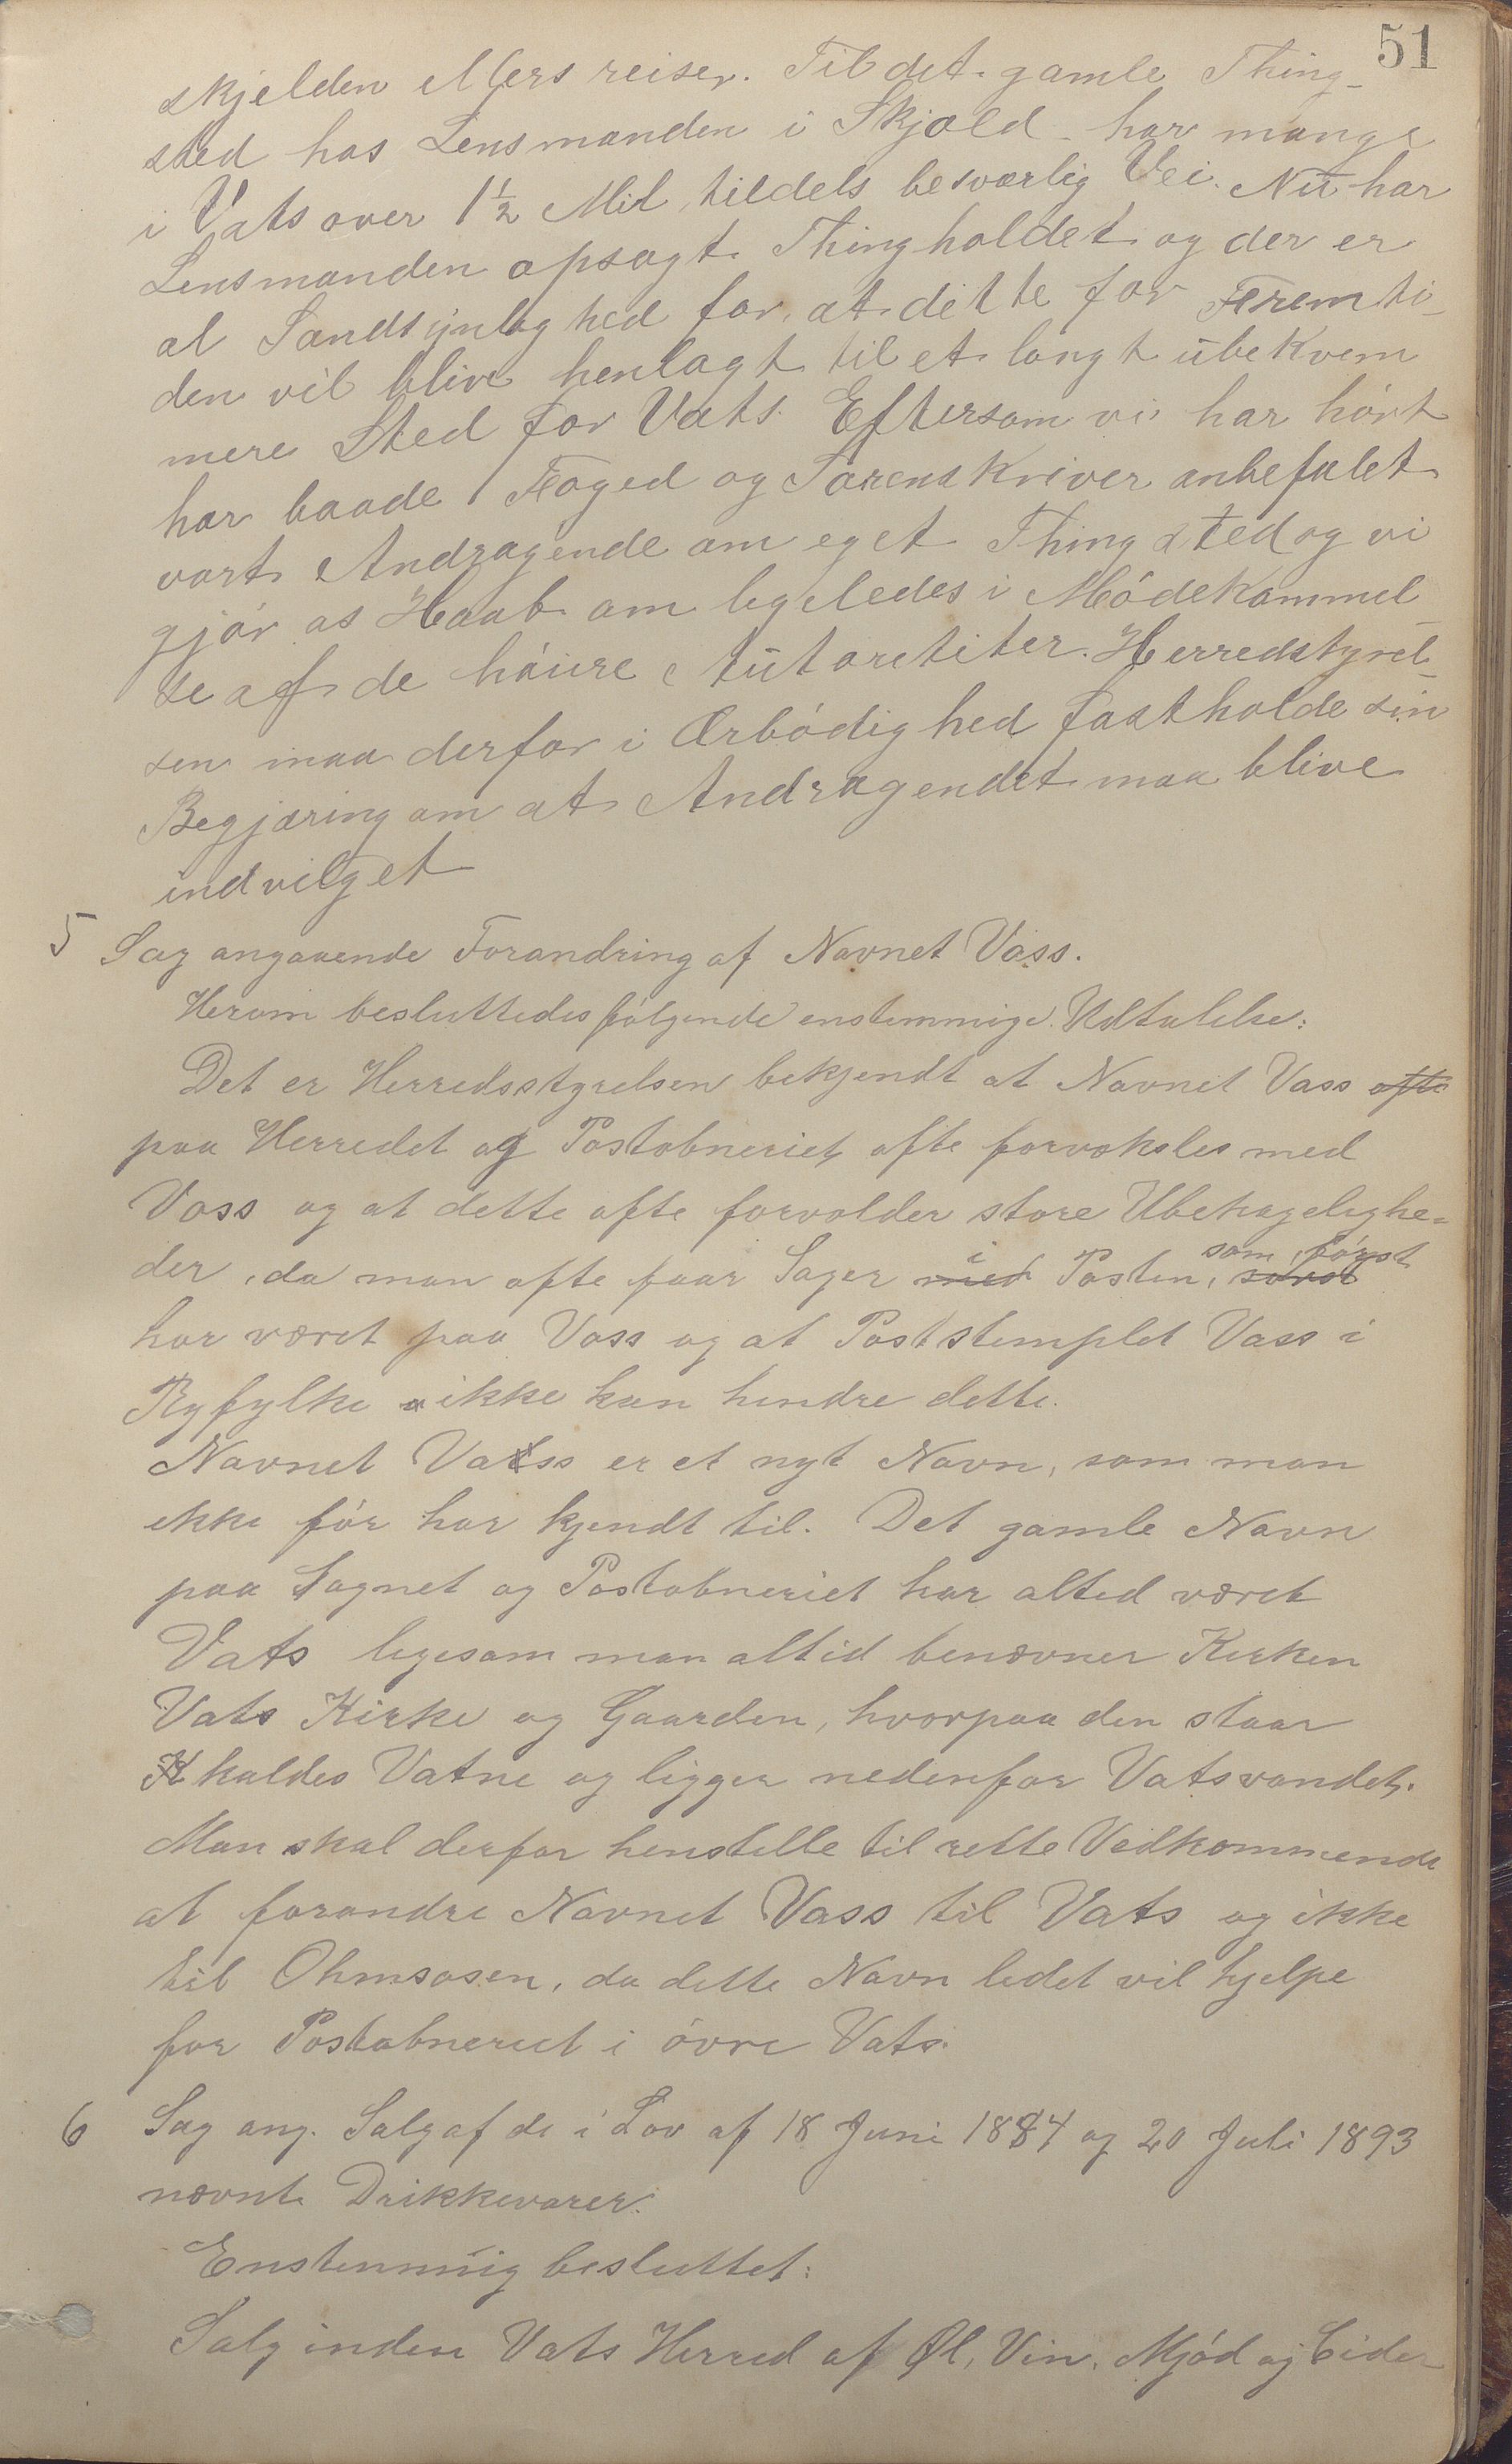 51
skjelden ellers reiser. Til det gamle Thing-
sted hos Lensmanden i Skjold har mange
i Vats over 1½ Mil, tildels besværlig Vei. Nu har
Lensmanden opsagt Thingholdet og der er
al Sandsynlighed for, at dette for Fremti-
den vil blive henlagt til et langt ubekvem
mere Sted for Vats. Eftersom vi har hórt
har baade Foged og Sorenskriver anbefalet
vort Andragende om eget Thingsted og vi
gjór os Haab om ligeledes i Módekommel-
se af de hóiere Autoretiter. Herredstyrel-
sen maa derfor i Ærbódighed fastholde sin
Begjæring om at Andragendet maa blive
indvilget
5 Sag angaaende Forandring af Navnet Vass.
Herom besluttedes fólgende enstemmige Udtalelse:
Det er Herredsstyrelsen bekjendt at Navnet Vass ofte
paa Herredet og Postobneriet ofte forveksles med
Voss og at dette ofte forvolder store Ubehagelighe=
der, da man ofte faar Sager med i Posten, som fórst
har været paa Voss og at Poststemplet Vass i
Ryfylke ikke kan hindre dette.
Navnet Vass er et nyt Navn, som man
ikke fór har kjendt til. Det gamle Navn
paa Sognet og Postobneriet har altid været
Vats ligesom man altid benævner Kirken
Vats Kirke og Gaarden, hvorpaa den staar
kaldes Vatne og ligger nedenfor Vatsvandet.
Man skal derfor henstille til rette Vedkommende
at forandre Navnet Vass til Vats og ikke
til Ohmsosen, da dette Navn ledet vil hjelpe
for Postobneriet i óvre Vats.
6 Sag ang. Salg af de i Lov af 18 Juni 1884 og 20 Juli 1893
nævnte Drikkevarer.
Enstemmig besluttet:
Salg inden Vats Herred af Øl, Vin, Mjód og Cider